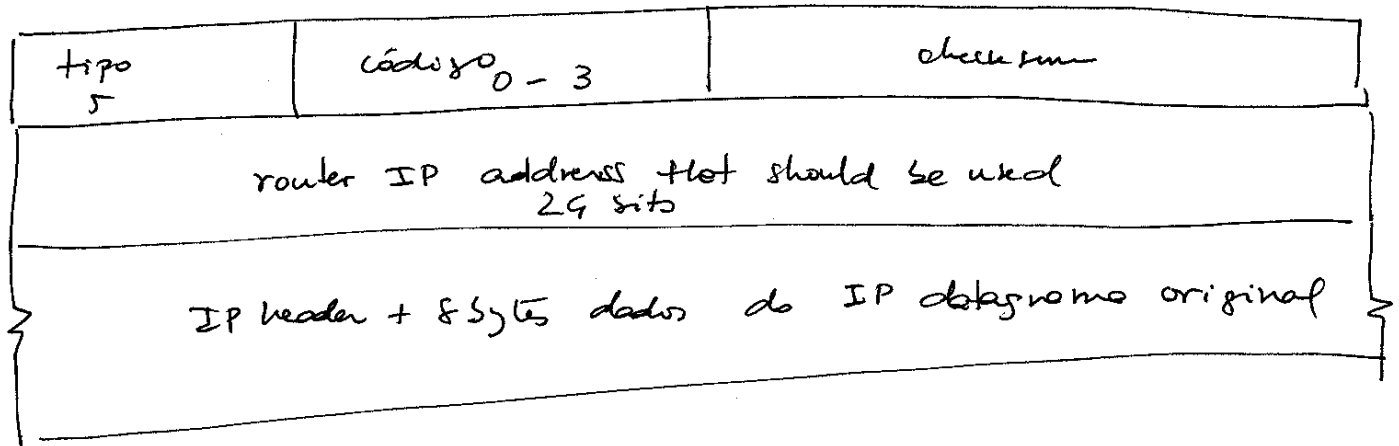 tipo código 0 - 3 checksum
5
router IP address that should be used
24 bits
IP header + 8 bytes dados do IP datagrama original